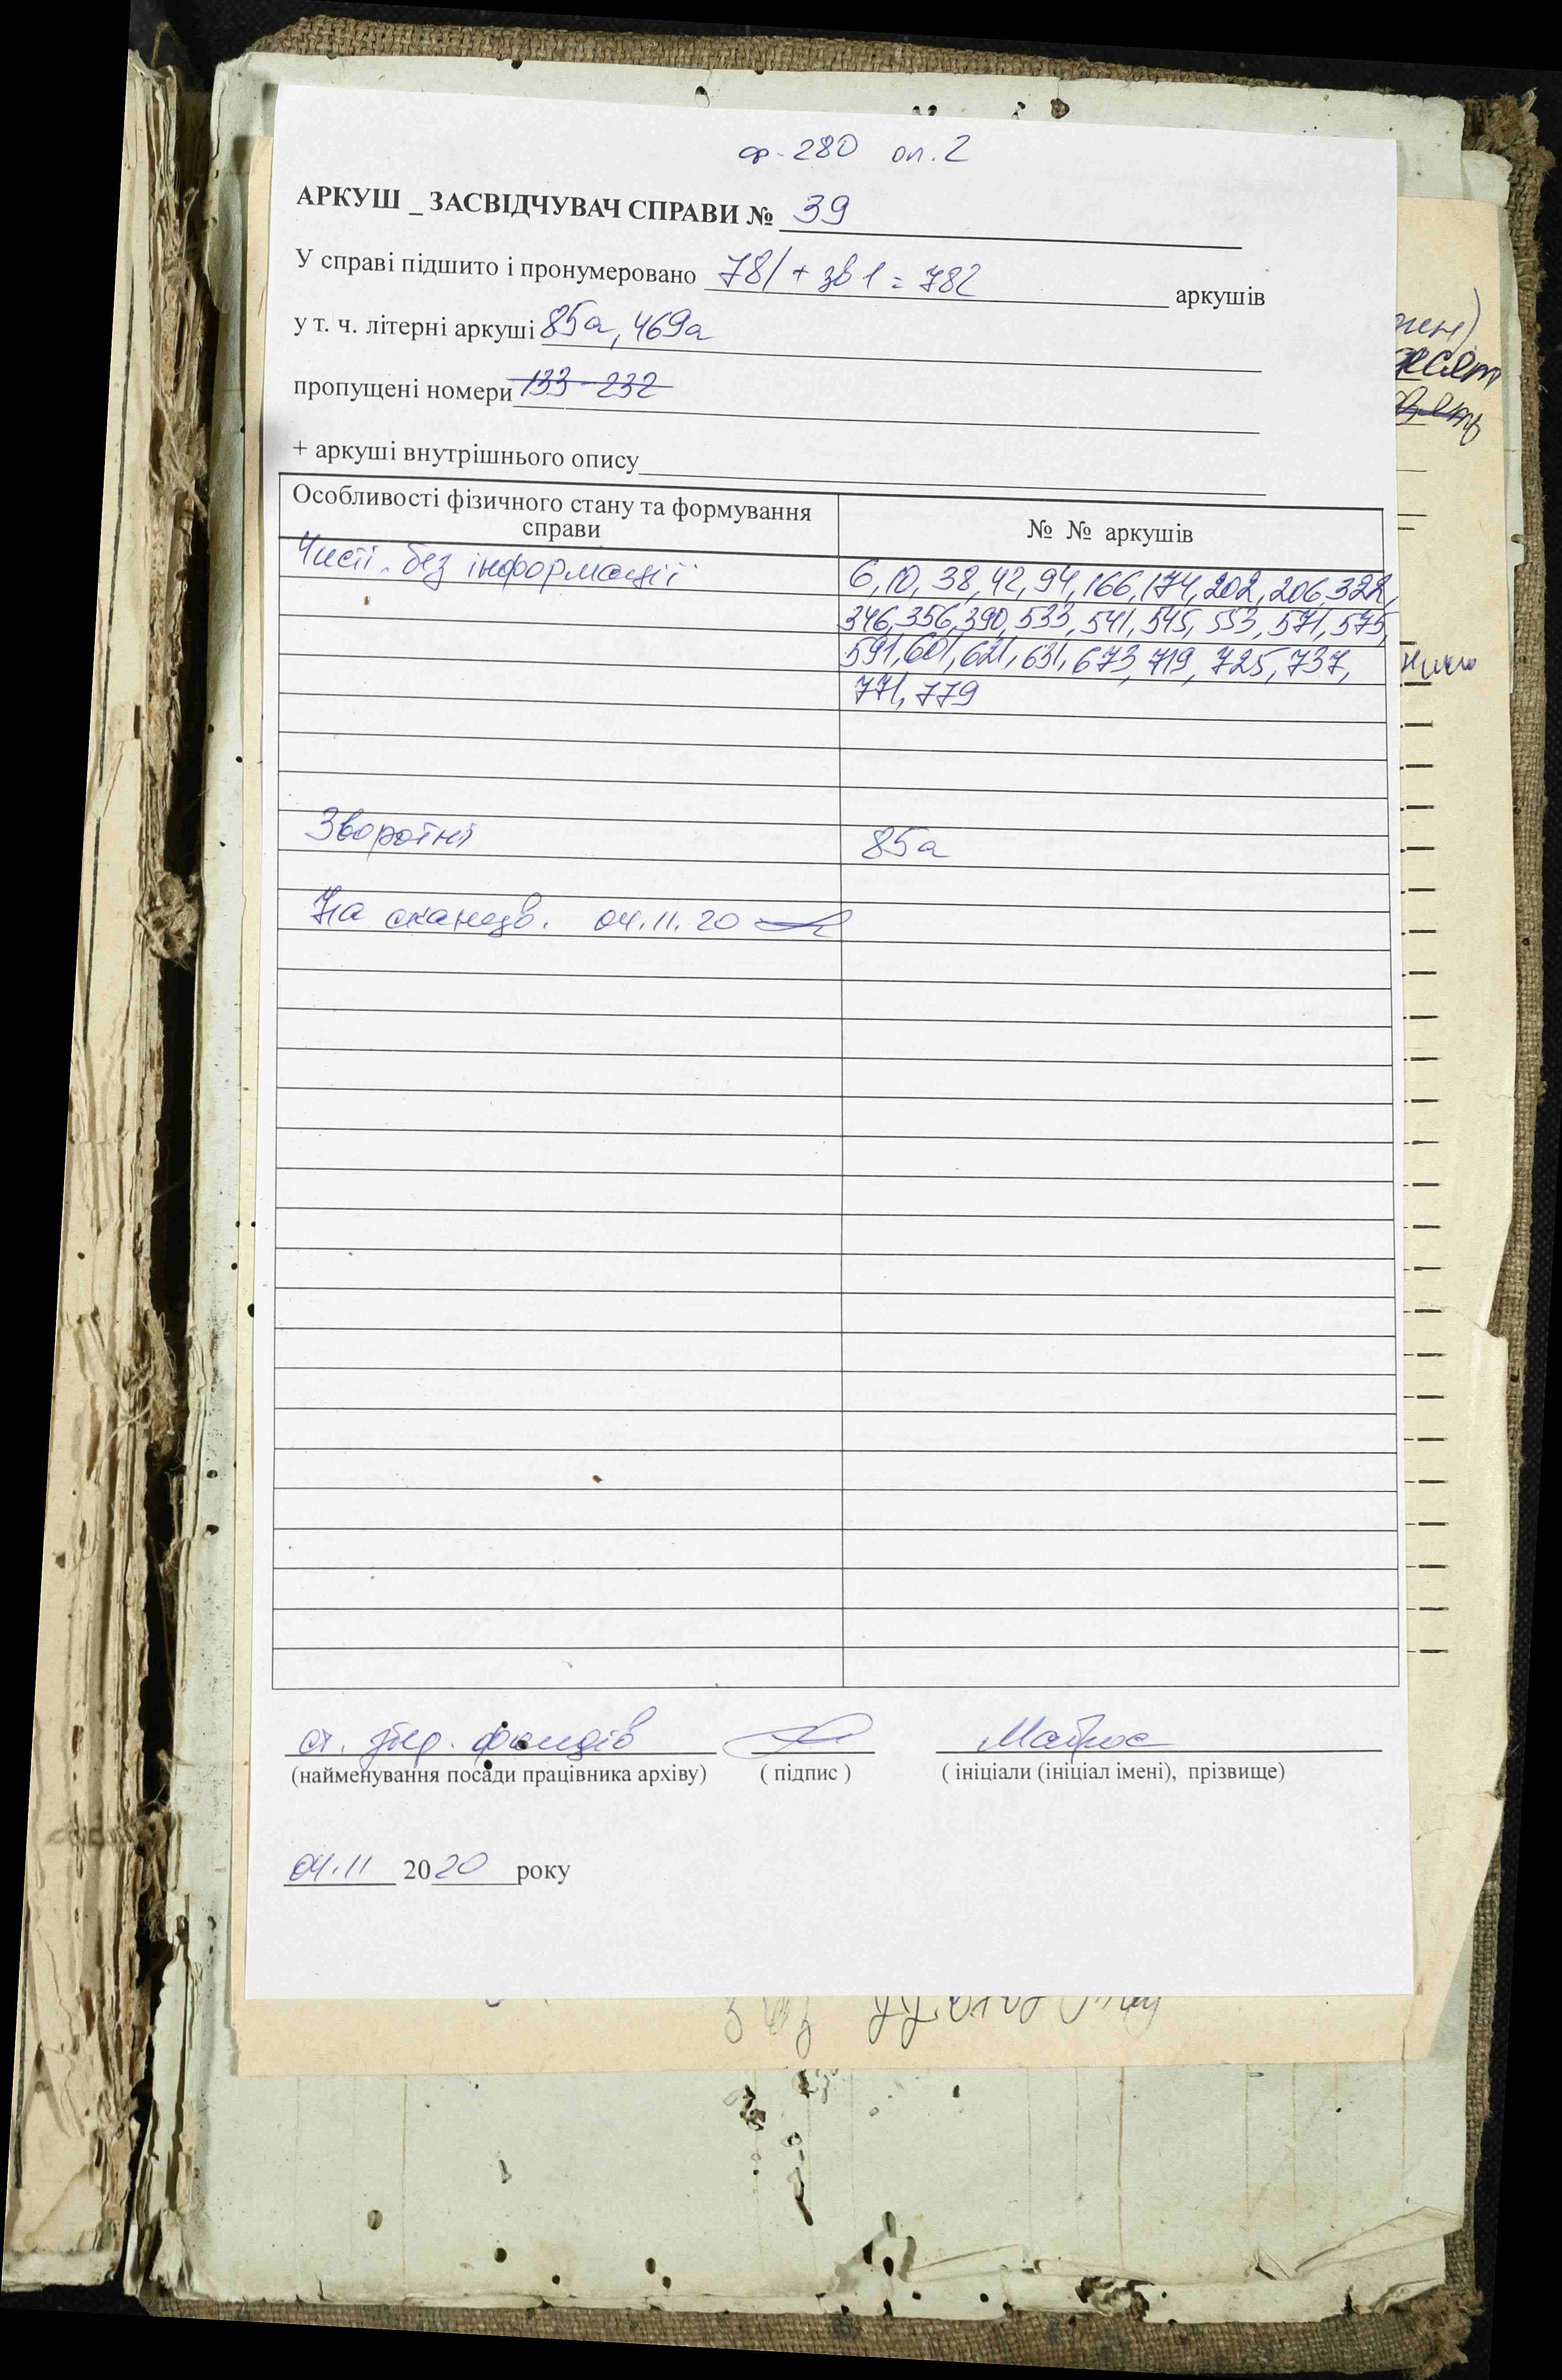 ф. 280 оп. 2
АРКУШ _ ЗАСВІДЧУВАЧ СПРАВИ № 39
У справі підшито і пронумеровано 781 + зв 1 = 782 аркушів
у т. ч. літерні аркуші 85а, 469а
пропущені номери 133-232
+ аркуші внутрішнього опису
Особливості фізичного стану та формування справи
№ № аркушів
Чисті. без інформації
6, 10, 38, 42, 94, 166, 174, 202, 206, 322,
346, 356, 390, 533, 541, 545, 553, 571, 575,
591, 601, 621, 631, 673, 719, 725, 737,
771, 779
Зворотні 85а
На сканув. 04.11.20
ст. збер. фондів
(найменування посади працівника архіву) ( підпис ) ( ініціали (ініціал імені), прізвище)
04.11 2020 року